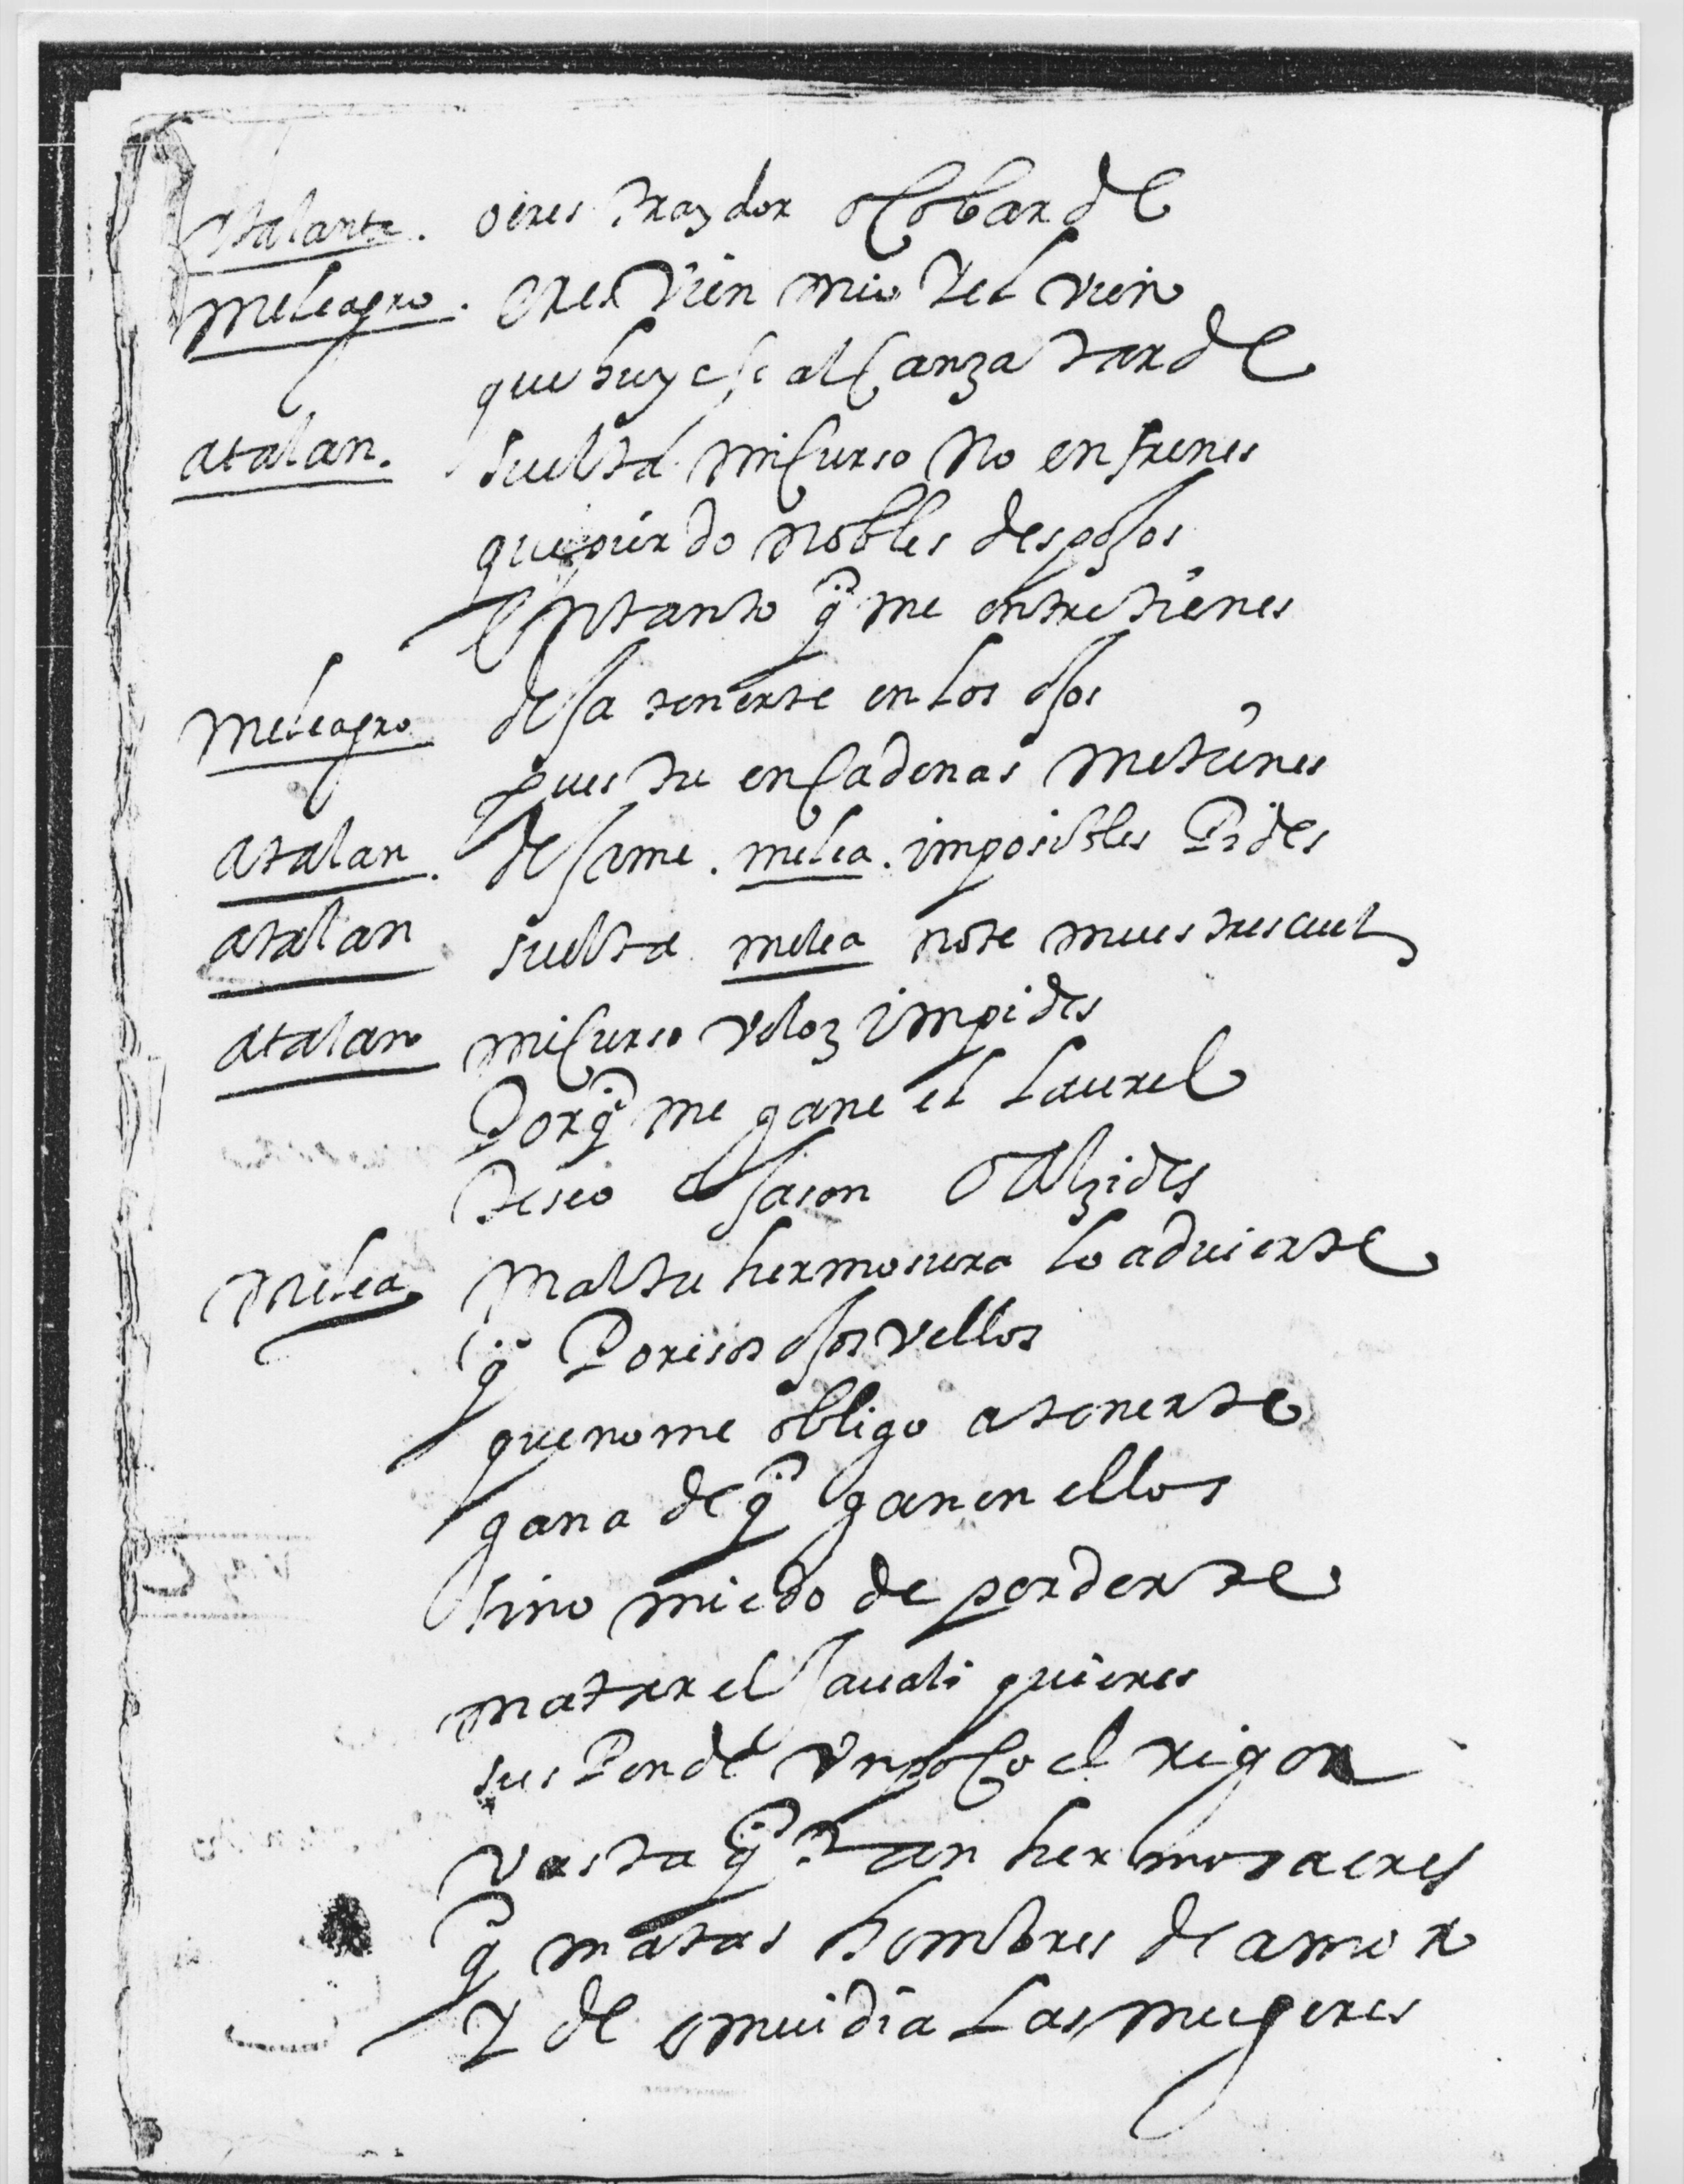 atalanta. o eres traydor o cobarde
meleagro. eres vien mio y el vien
que huyese alcanza tarde
atalan. suelta mi curso no enfrenes
que pierdo nobles despojos
en tanto q̃ me entretienes
meleagro deja tenerte en los ojos
pues tu en cadenas me tienes
atalan. dejame. melea. imposibles Pides
atalan suelta melea no te muestres cruel
atalan mi curso veloz impides
Porq̃ me gane el laurel
teseo o jason o Alzides
melea mal tu hermosura lo advierte
q̃ Por esos ojos vellos
que no me obligo a tenerte
gana de q̃ ganen ellos
sino miedo de perderte
matar el javali quieres
susPende vn poco el rigor
vasta q̃ tan hermosa eres
q̃ matas hombres de amor
Y de emuidia las mugeres